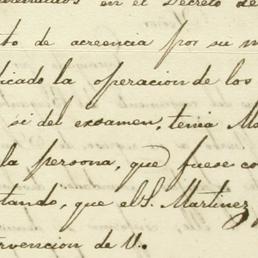 en el Decreto de
to de acreencia por su m
icado la operacion de los
si del exsamen, tenia Ma
la persona, que fuese co
tando, que el S. Martinez
tervencion de V.